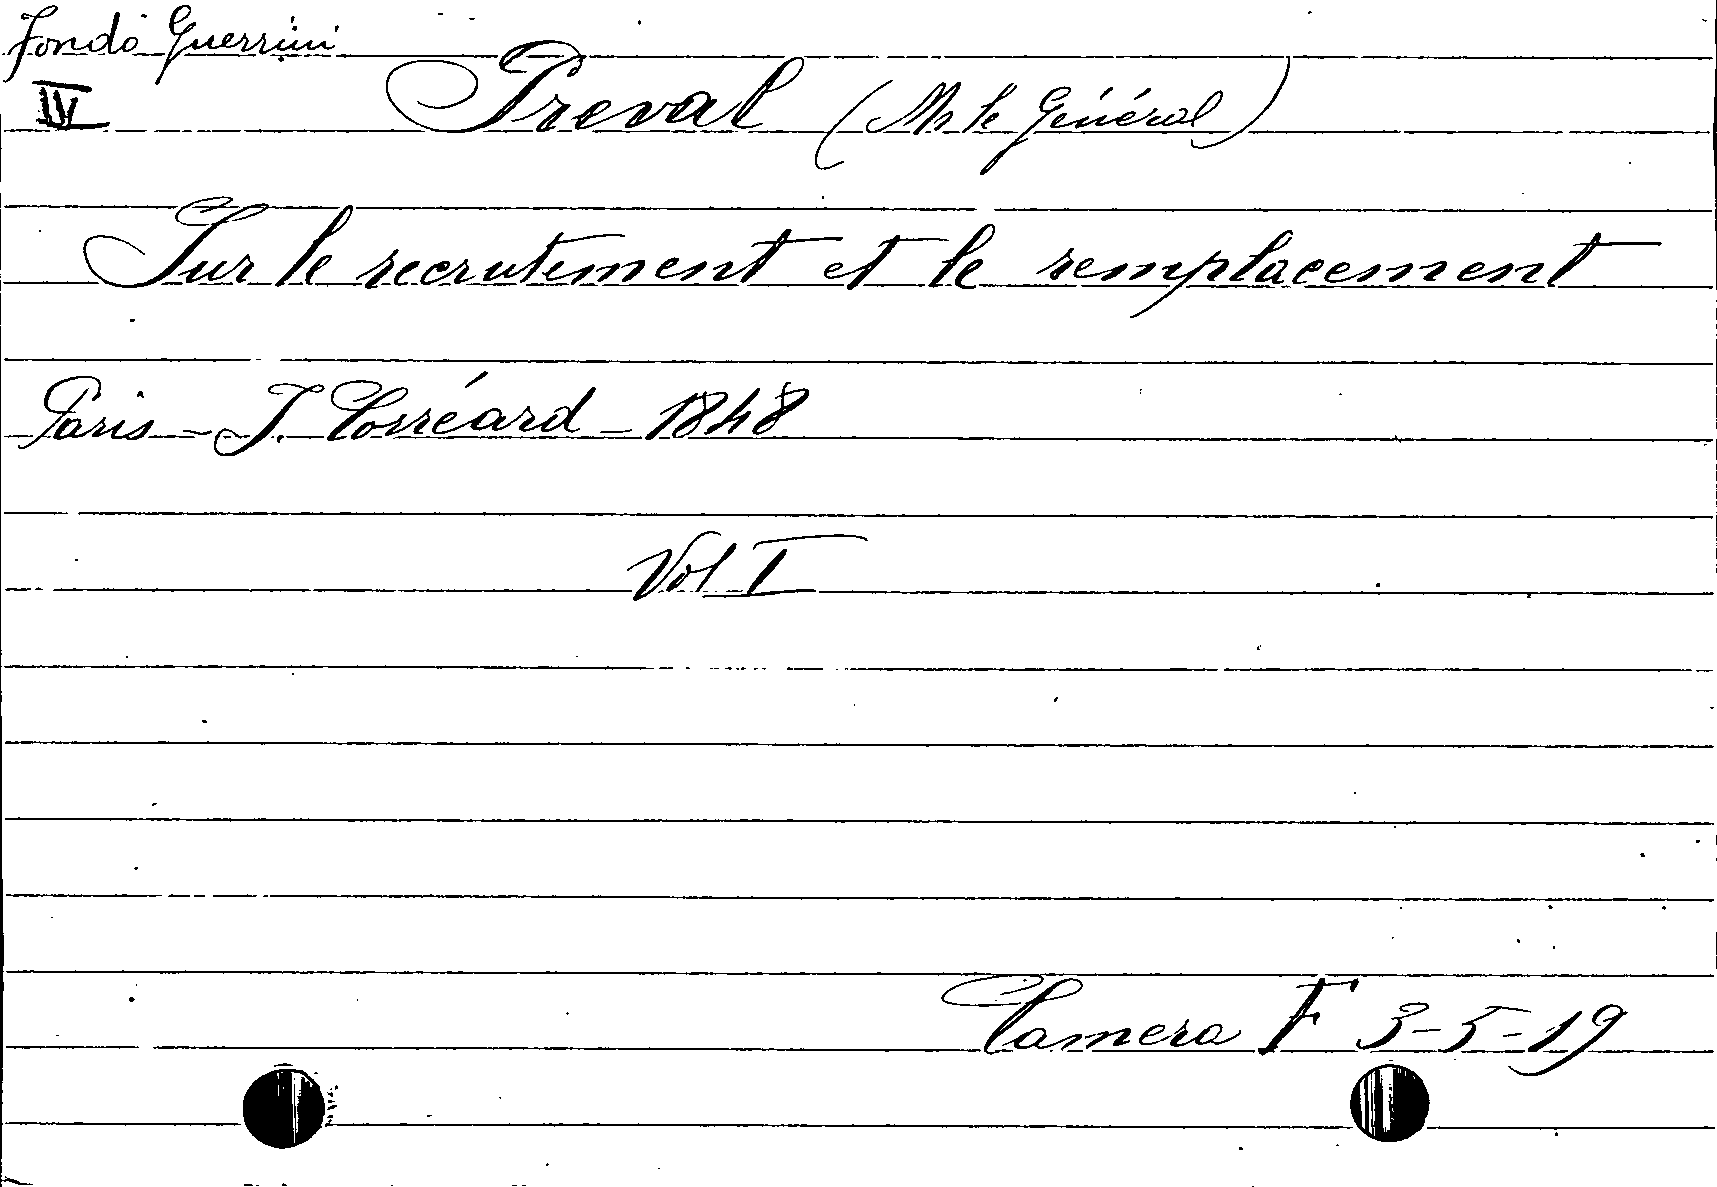 Fondo Guerrini
IV Preval (Mr le Général)
Sur le recrutement et le remplacement
Paris - J. Corréard - 1848
Vol I
Camera F 3-5-19